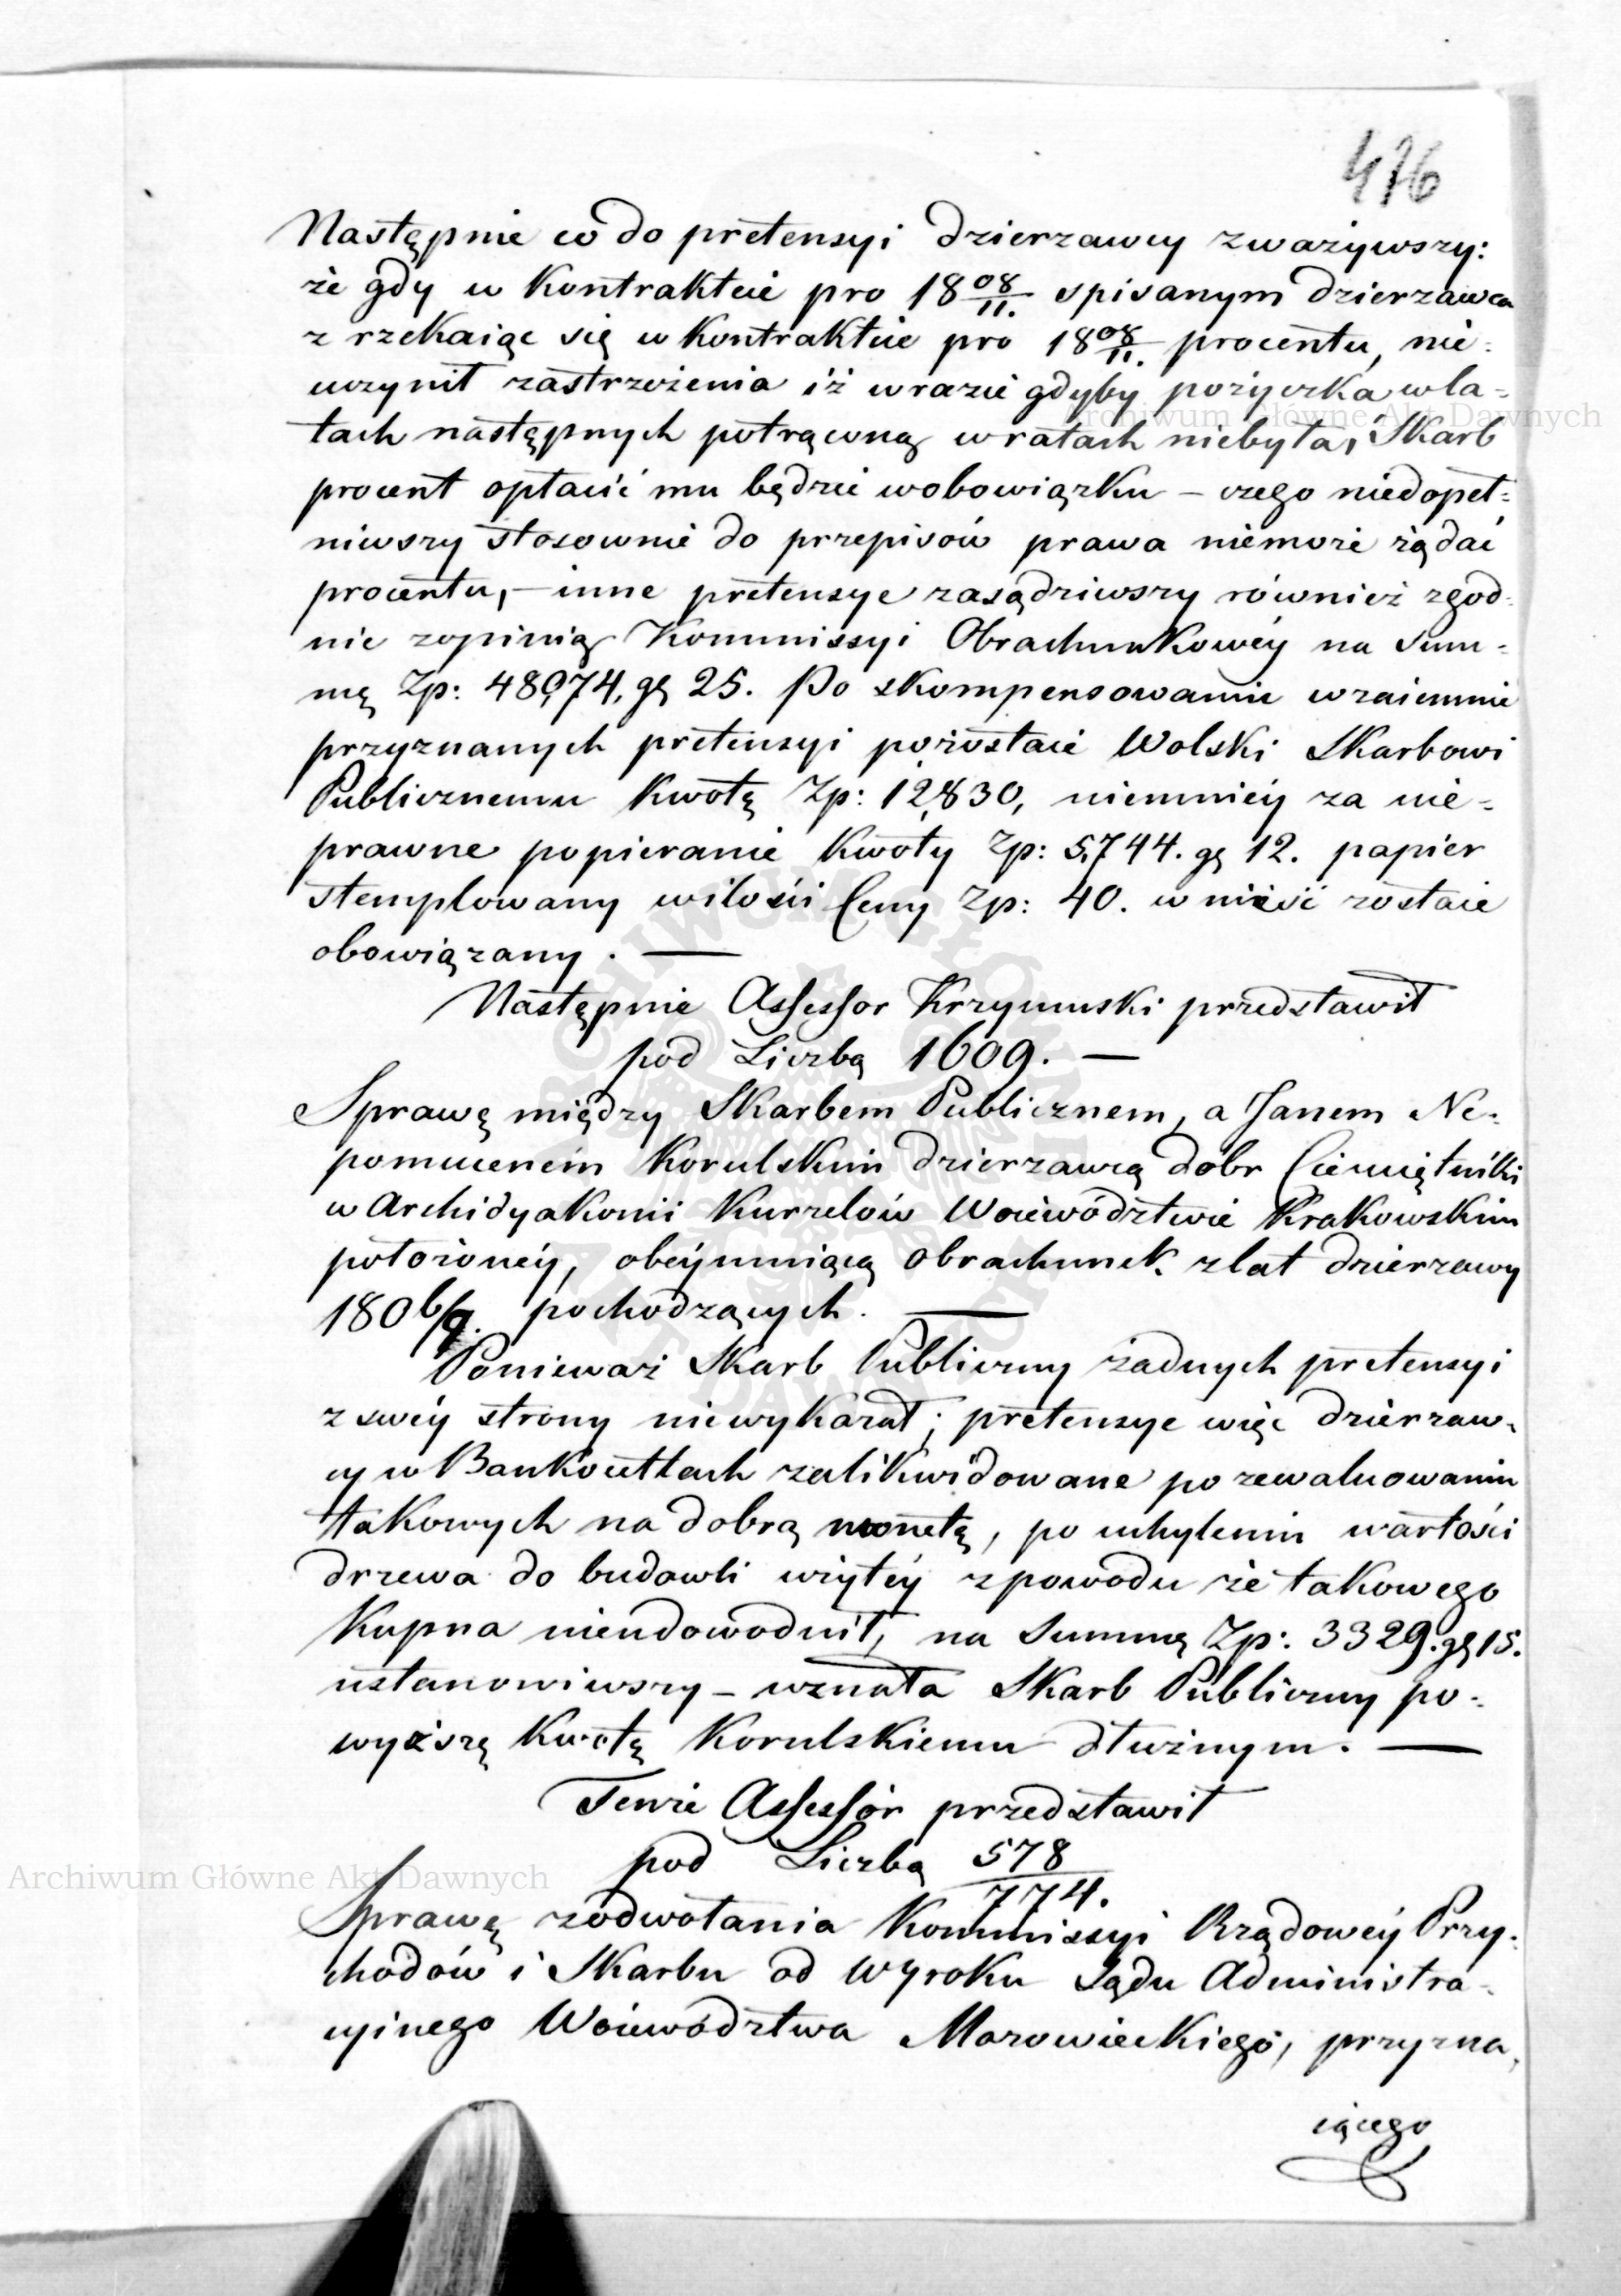 476
Następnie co do pretensyi dzierzawcy zważywszy:
że gdy w Kontrakcie pro 18 08/11. spisanym dzierzawca
zrzekaiąc się w Kontrakcie pro 18 08/11. procentu, nie-
uczynił zastrzeżenia iż w razie gdyby pożyczka w la-
tach następnych potrąconą w ratach niebyła, Skarb
procent opłacić mu będzie w obowiązku – czego niedopeł-
niwszy stosownie do przepisów prawa niemoże żądać
procentu, – inne pretensye zasądziwszy również zgod-
nie z opinią Kommissyi Obrachunkowéy na sum-
mę Zp: 48,074, gr 25. Po skompensowaniu wzaiemnie
przyznanych pretensyi pozostaie Wolski Skarbowi
Publicznemu Kwotę Zp: 12,830, niemniéy za nie-
prawne popieranie Kwoty Zp: 5,744. gr 12. papier
stemplowany w ilości Ceny Zp: 40. wnieść zostaie
obowiązany. —
Następnie Assessor Krzymuski przedstawił
pod Liczbą 1609. —
Sprawę między Skarbem Publicznem, a Janem Ne-
pomucenem Korulskim dzierzawcą dóbr Ciemiętniki
w Archidyakonii Kurzelów Woiewództwie Krakowskim
położonéy, obeymuiącą obrachunek z lat dzierzawy
1806/9. pochodzących. —
Ponieważ Skarb Publiczny żadnych pretensyi
z swéy strony niewykazał; pretensye więc dzierzaw-
cy w Bankocetlach zalikwidowane po zewaluowaniu
takowych na dobrą monetę, po uchyleniu wartości
drzewa do budowli wziętéy z powodu że takowego
Kupna nieudowodnił, na Summę Zp: 3329. gr 15.
ustanowiwszy – uznała Skarb Publiczny po-
wyższą Kwotę Korulskiemu dłużnym. —
Tenże Assessor przedstawił
pod Liczbą 578/774.
Sprawę z odwołania Kommissyi Rządowéy Przy-
chodów i Skarbu od Wyroku Sądu Administra-
cyinego Woiewództwa Mazowieckiego, przyzna-
iącego
Archiwum Główne Akt Dawnych
Archiwum Główne Akt Dawnych